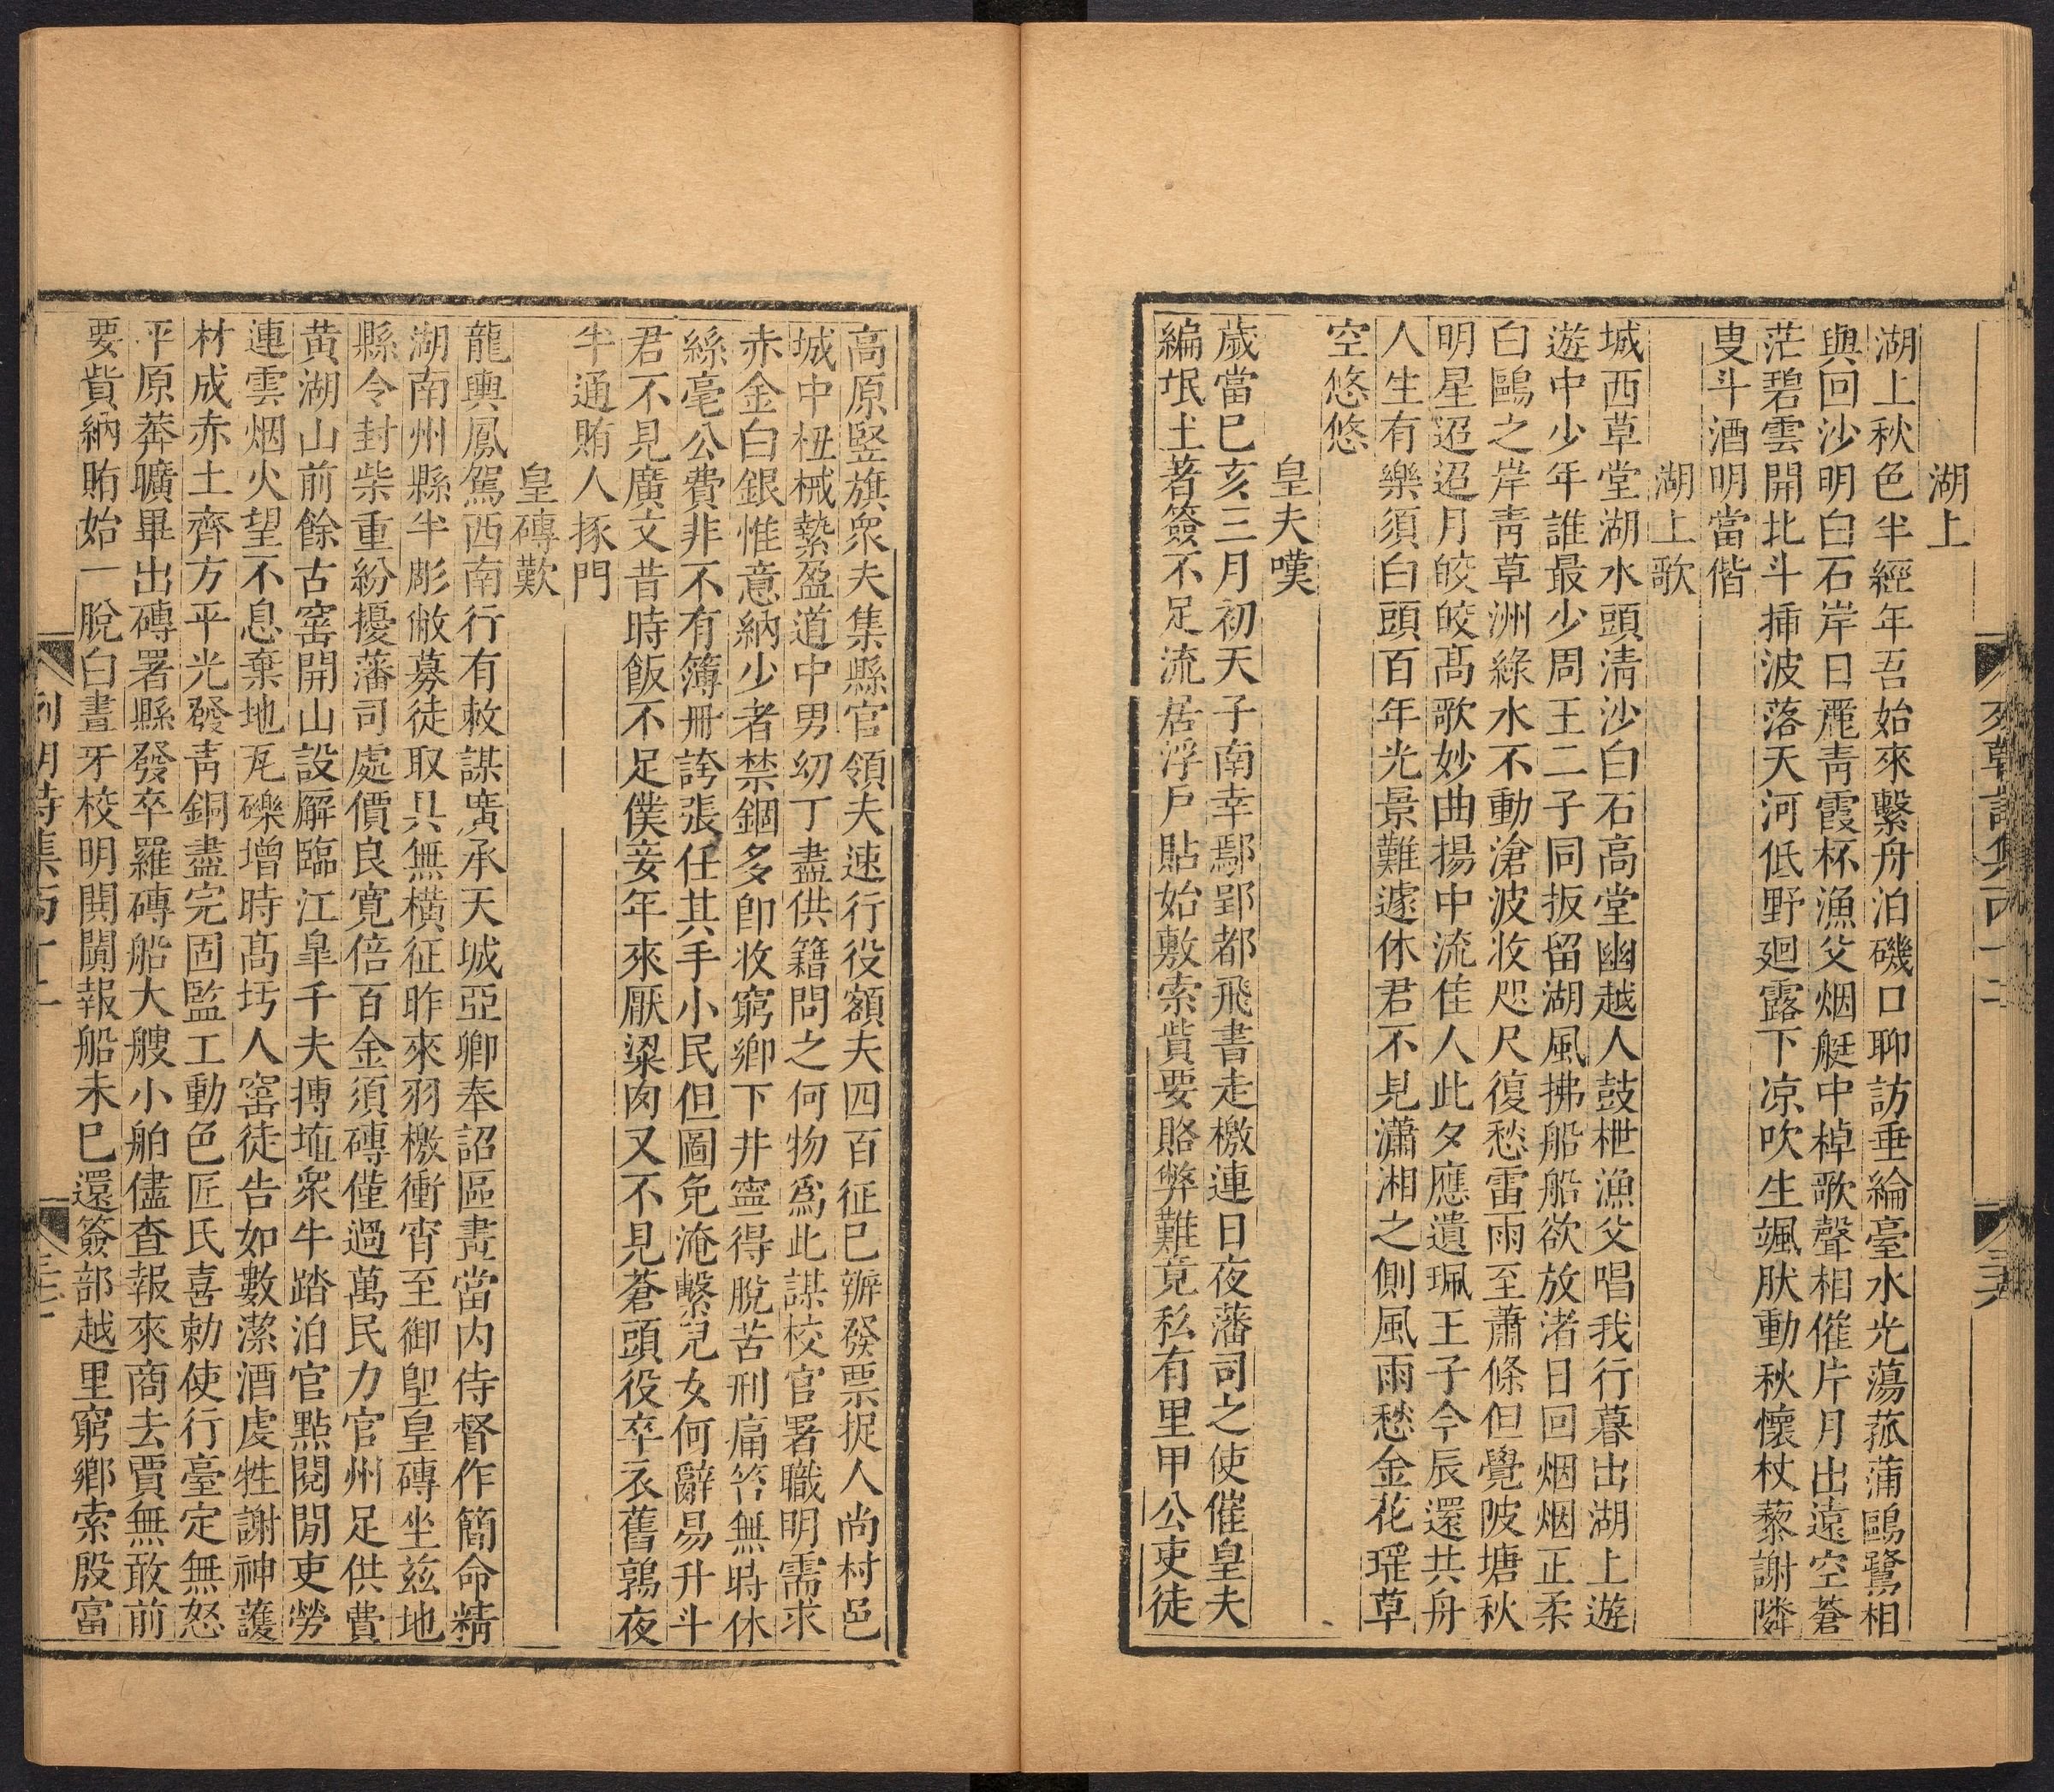 湖上
湖上秋色半經年吾始來繫舟泊磯口聊訪垂綸臺水光蕩菰蒲鷗鷺相
與回沙明白石岸日麗青霞杯漁父烟艇中棹歌聲相催片月出遠空蒼
茫碧雲開北斗揷波落天河低野廻露下凉吹生颯肰動秋懷杖藜謝隣
叟斗酒明當偕
湖上歌
城西草堂湖水頭清沙白石高堂幽越人鼓枻漁父唱我行暮出湖上遊
遊中少年誰最少周王二子同扳留湖風拂船船欲放渚日回烟烟正柔
白鷗之岸青草洲綠水不動滄波收咫尺復愁雷雨至蕭條但覺陂塘秋
明星迢迢月皎皎髙歌妙曲揚中流佳人此夕應遺珮王子今辰還共舟
人生有樂須白頭百年光景難遽休君不見瀟湘之側風雨愁金花瑤草
空悠悠
皇夫嘆
歲當巳亥三月初天子南幸鄢郢都飛書走檄連日夜藩司之使催皇夫
編氓土著簽不足流居浮戶貼始敷索貲要賂弊難竟私有里甲公吏徒
高原竪旗衆夫集縣官領夫速行役額夫四百征巳辦發票捉人尚村邑
城中杻械縶盈道中男幼丁盡供籍問之何物爲此謀校官署職明需求
赤金白銀惟意納少者禁錮多卽收窮鄉下井寧得脫苦刑痛笞無時休
絲毫公費非不有簿冊誇張任其手小民但圖免淹繫兒女何辭易升斗
君不見廣文昔時飯不足僕妾年來厭粱肉又不見蒼頭役卒衣舊鶉夜
半通賄人豕門
皇磚歎
龍輿鳳駕西南行有敕謀廣承天城亞卿奉詔區畫當内侍督作簡命精
湖南州縣半彫敝募徒取具無橫征昨來羽檄衝宵至御卽皇磚坐兹地
縣令封柴重紛擾藩司處價良寛倍百金須磚僅過萬民力官州足供費
黄湖山前餘古窰開山設廨臨江臯千夫摶埴衆牛踏泊官點閱閒吏勞
連雲烟火望不息棄地瓦礫增時髙圬人窰徒告如數潔酒虔牲謝神護
材成赤土齊方平光發青銅盡完固監工動色匠氏喜勅使行臺定無怒
平原莽曠畢出磚署縣發卒羅磚船大艘小舶儘查報來商去賈無敢前
要貲納賄始一脫白晝牙校明開闤報船未巳還簽部越里窮鄉索殷富